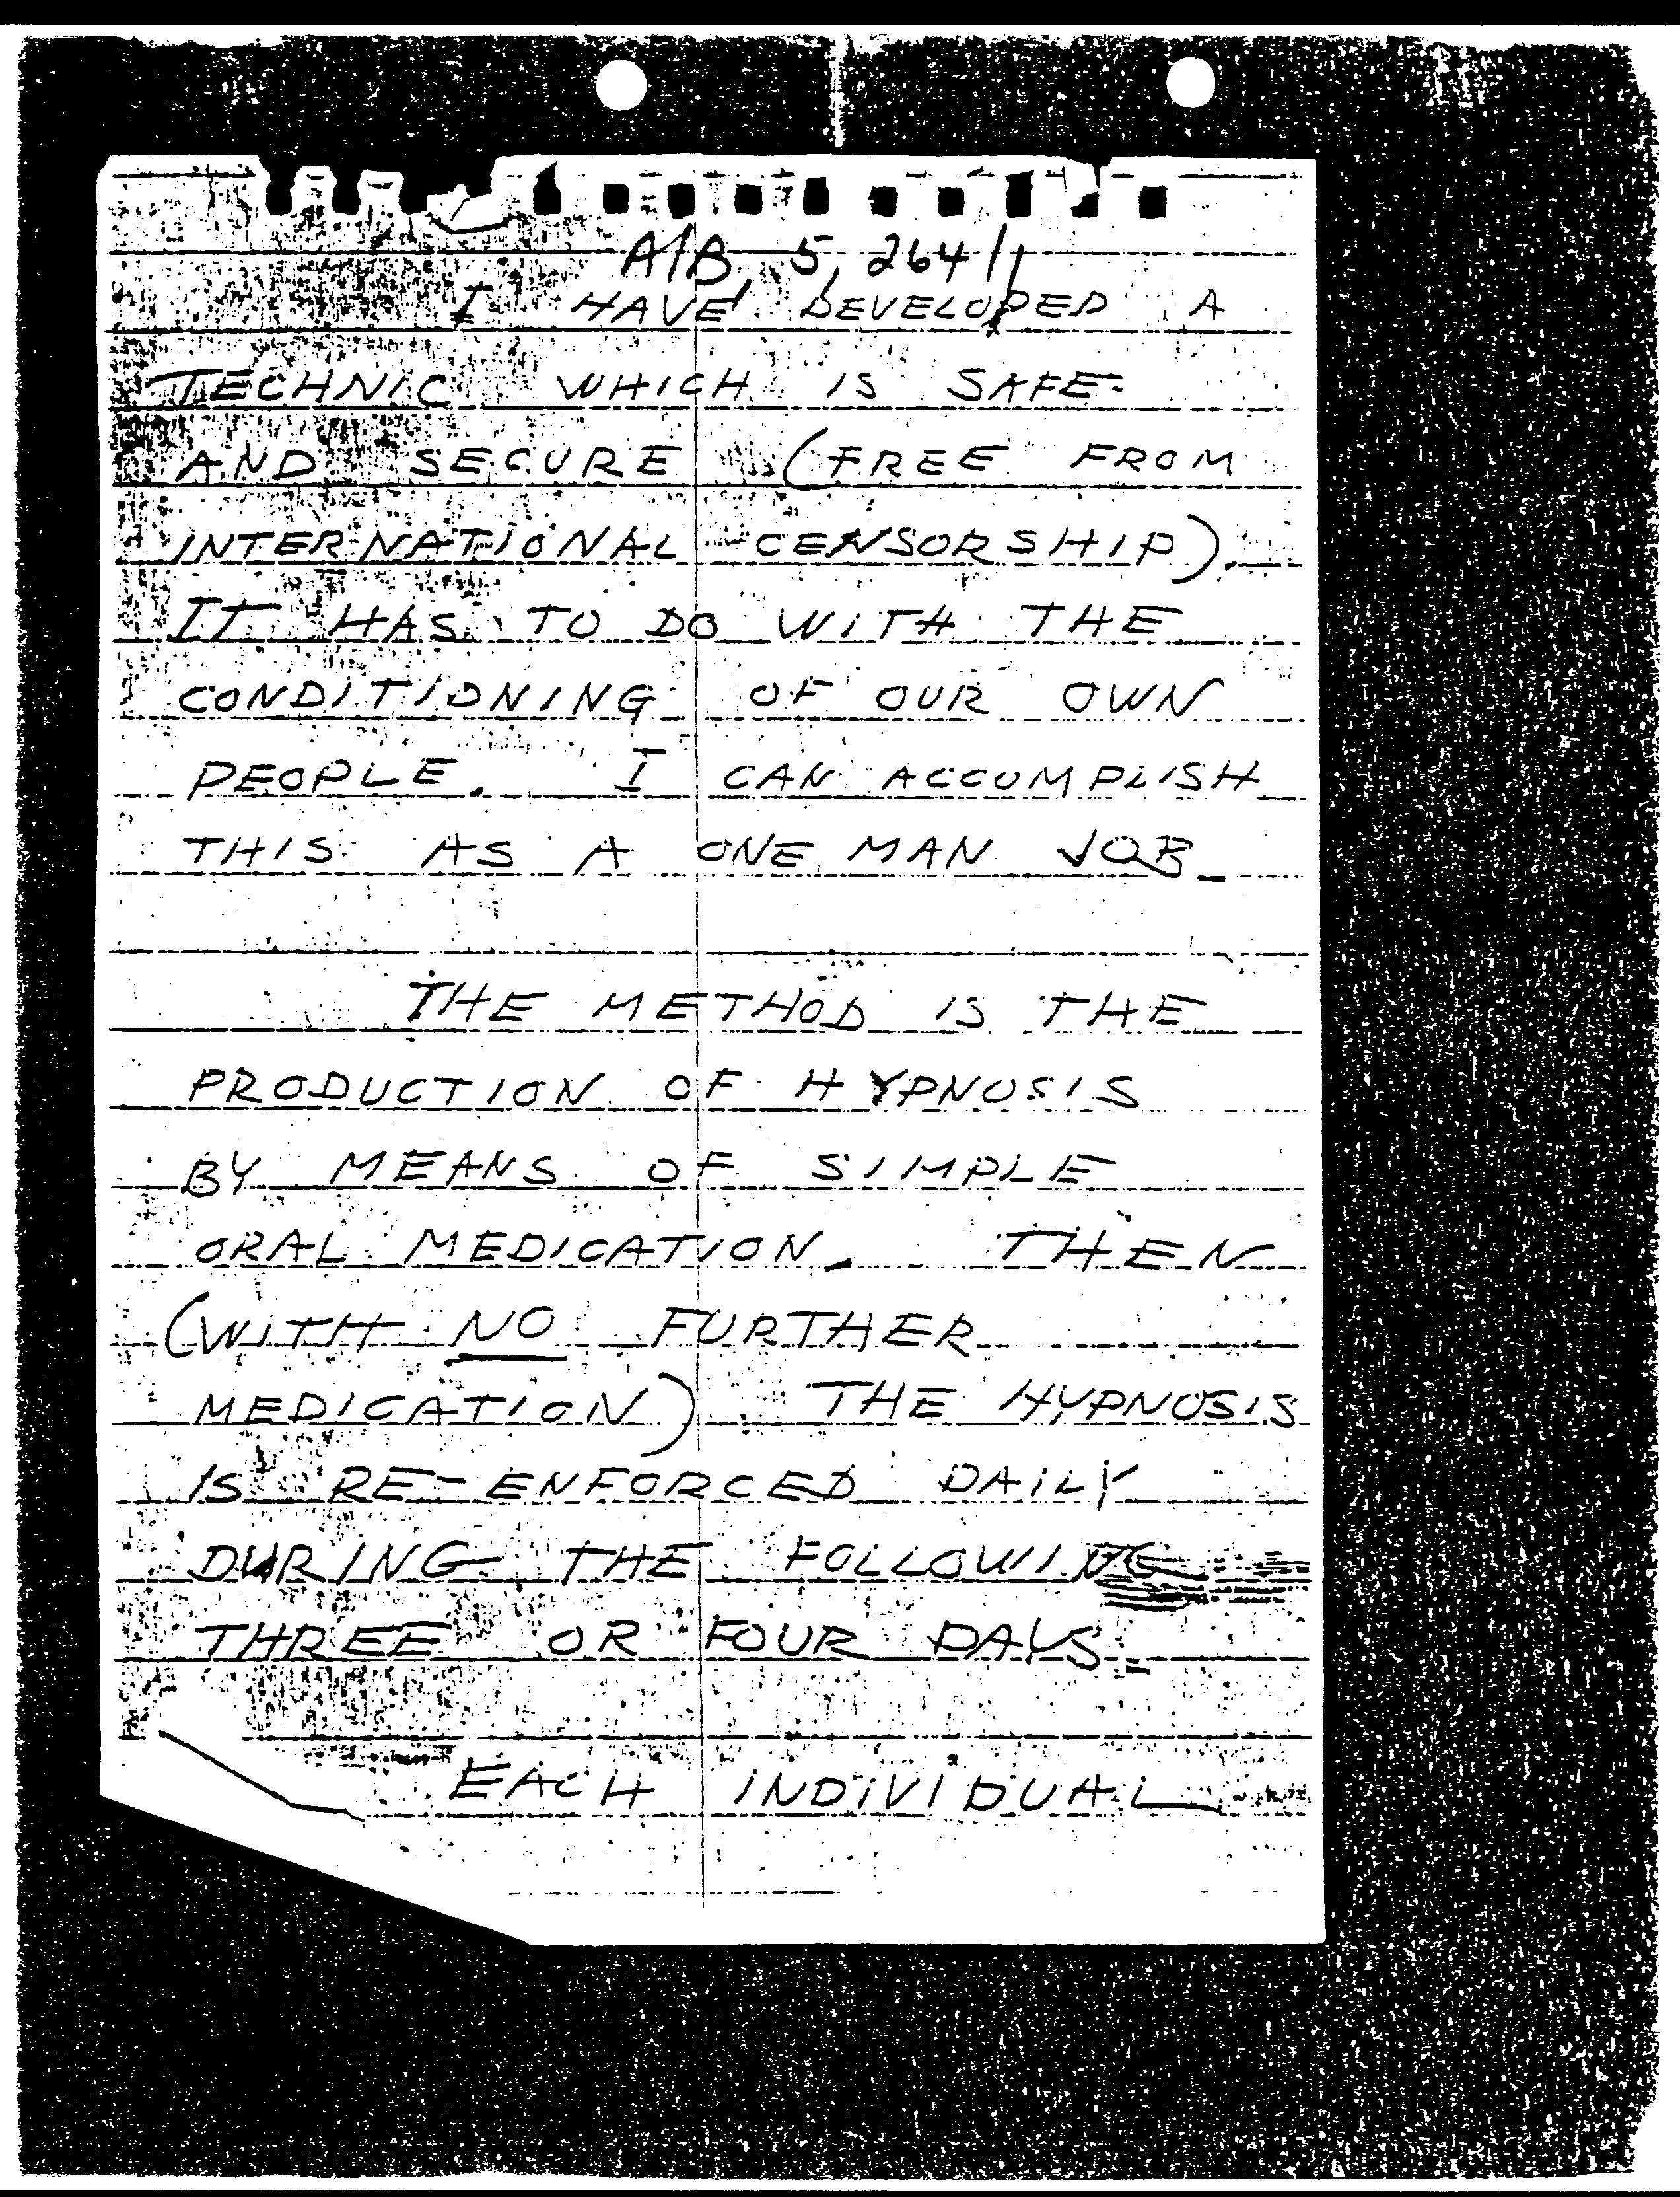 A/B 5, 264/1
I HAVE DEVELOPED A
TECHNIC WHICH IS SAFE
AND SECURE (FREE FROM
INTERNATIONAL CENSORSHIP).
IT HAS TO DO WITH THE
CONDITIONING OF OUR OWN
PEOPLE. I CAN ACCOMPLISH
THIS AS A ONE MAN JOB.
THE METHOD IS THE
PRODUCTION OF HYPNOSIS
BY MEANS OF SIMPLE
ORAL MEDICATION. THEN
(WITH NO FURTHER
MEDICATION) THE HYPNOSIS
IS RE-ENFORCED DAILY
DURING THE FOLLOWING
THREE OR FOUR DAYS.
EACH INDIVIDUAL